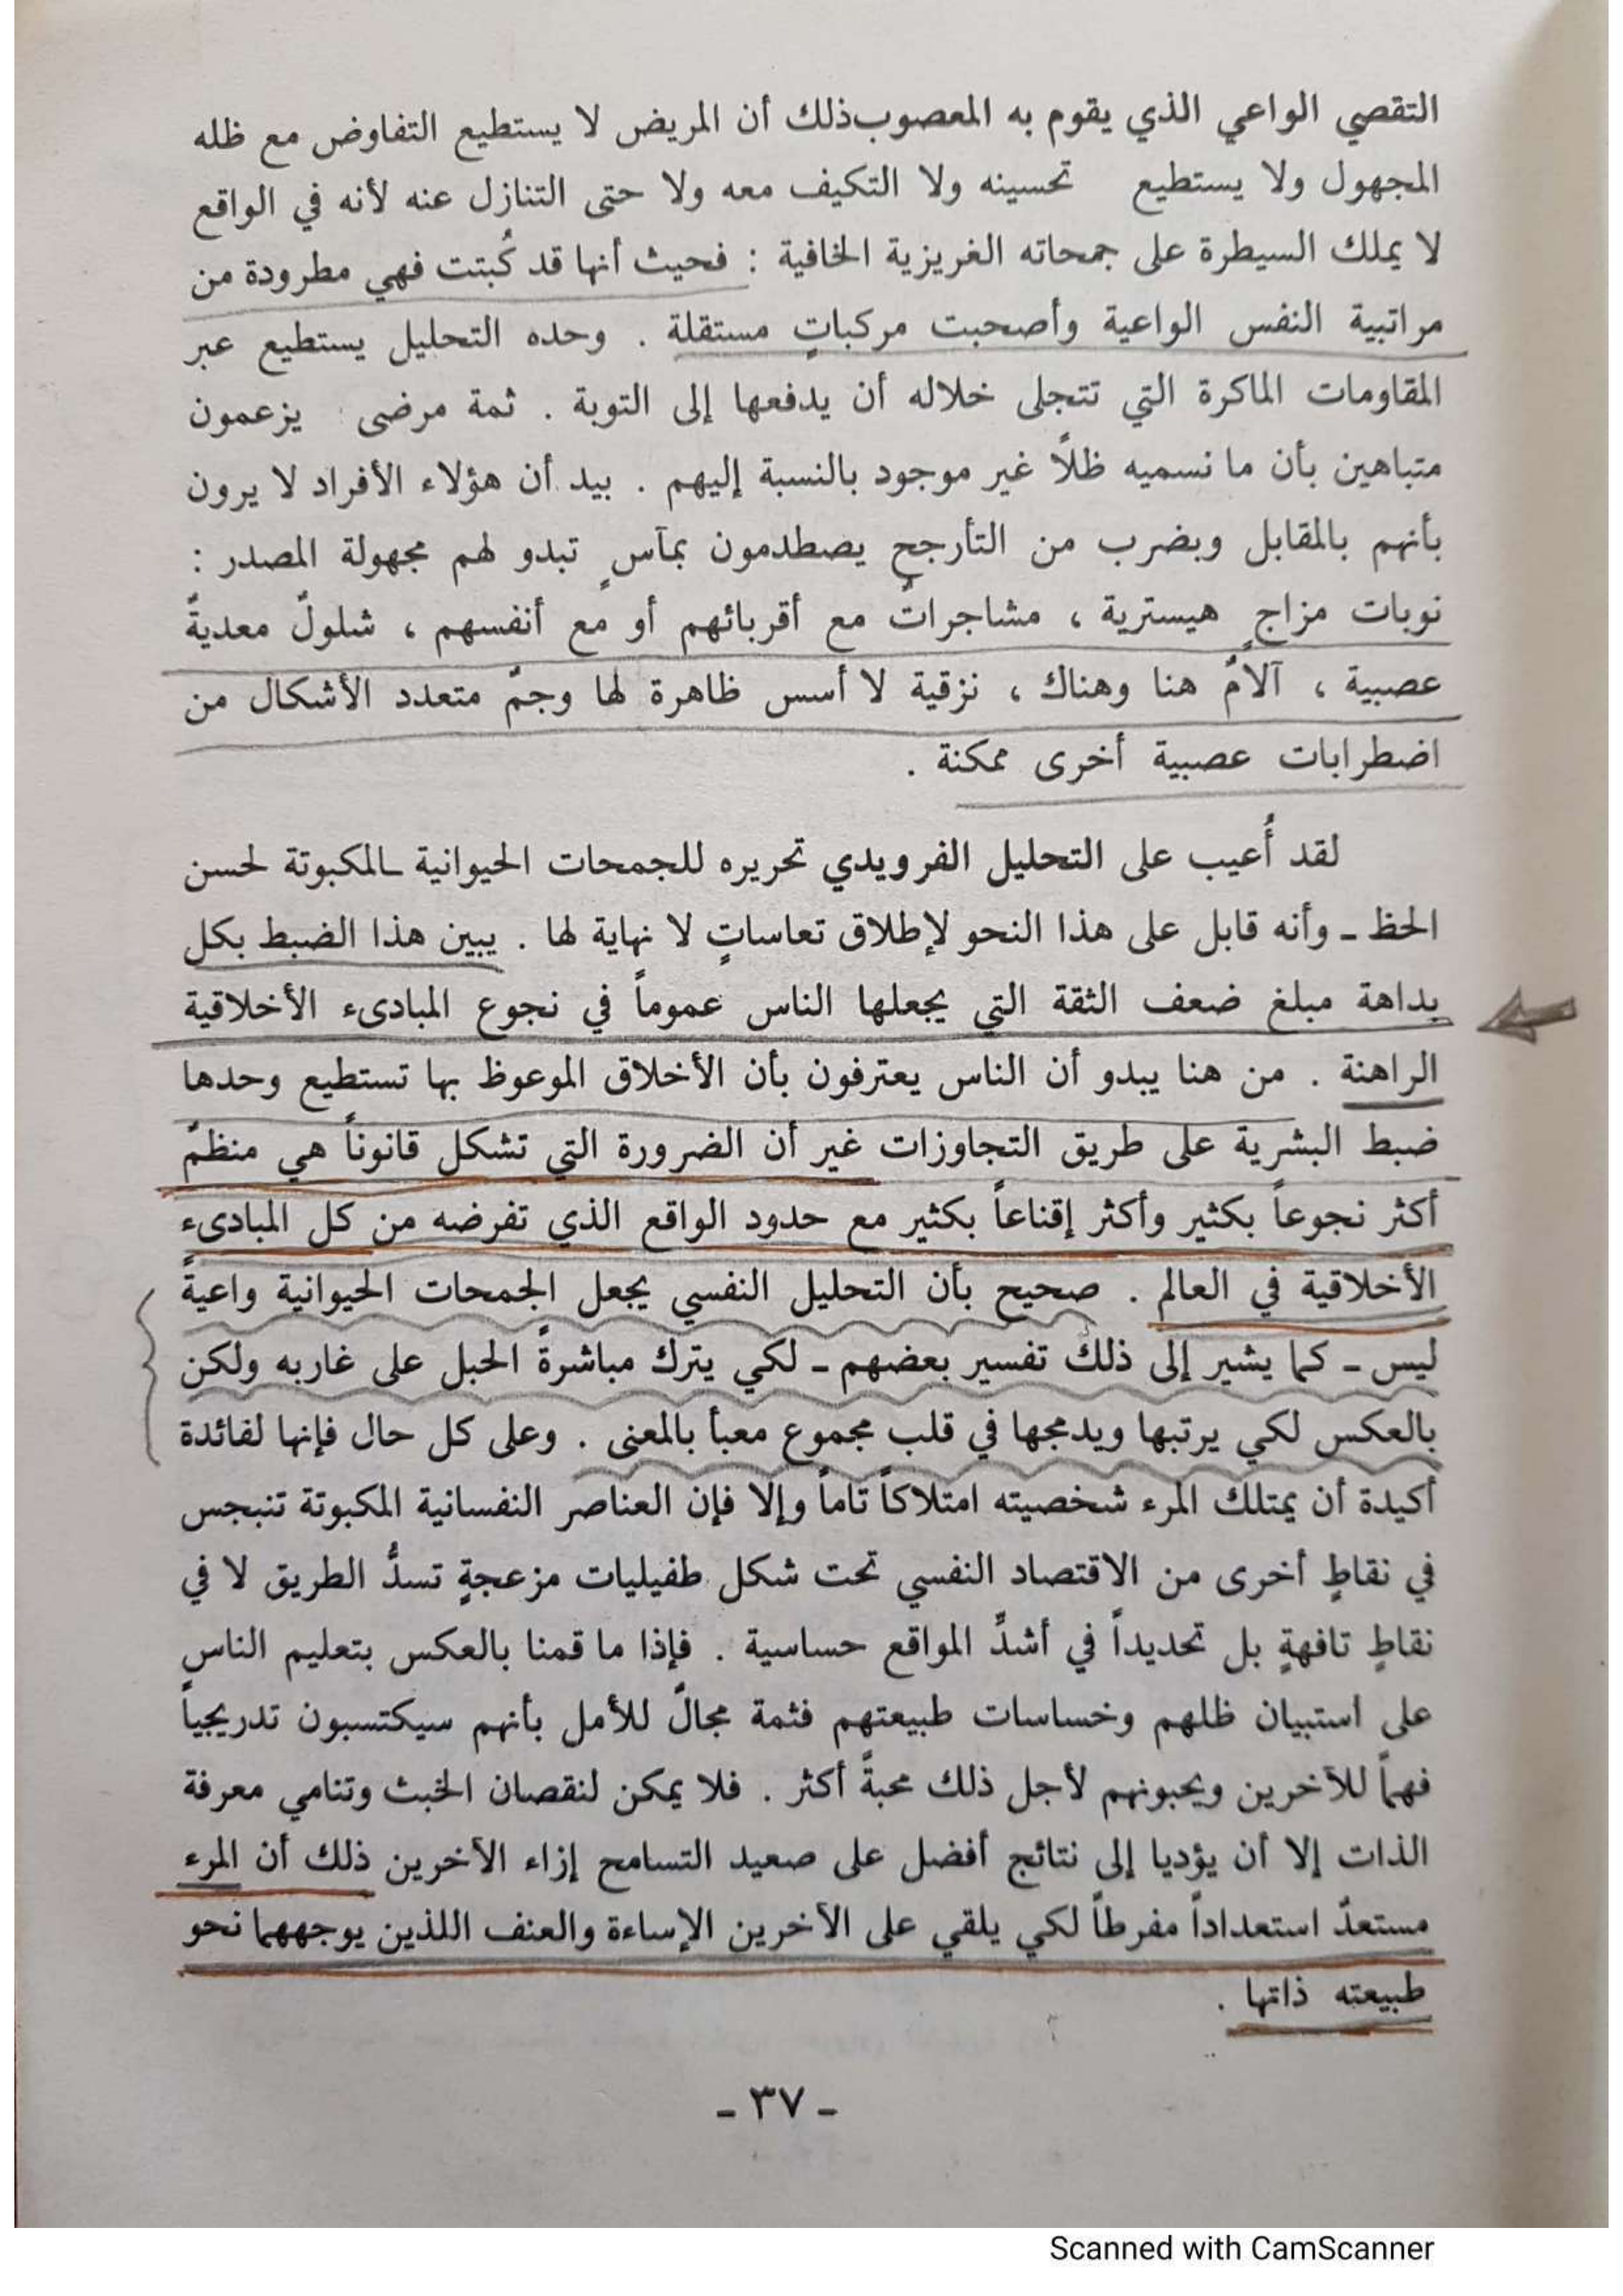 التقصي الواعي الذي يقوم به المعصوب ذلك أن المريض لا يستطيع التفاوض مع ظله
المجهول ولا يستطيع تحسينه ولا التكيف معه ولا حتى التنازل عنه لأنه في الواقع
لا يملك السيطرة على جمحاته الغريزية الخافية : فحيث أنها قد كُبتت فهي مطرودة من
مراتبية النفس الواعية وأصحبت مركباتٍ مستقلة . وحده التحليل يستطيع عبر
المقاومات الماكرة التي تتجلى خلاله أن يدفعها إلى التوبة . ثمة مرضى يزعمون
متباهين بأن ما نسميه ظلاً غير موجود بالنسبة إليهم . بيد أن هؤلاء الأفراد لا يرون
بأنهم بالمقابل وبضرب من التأرجح يصطدمون بمآسٍ تبدو لهم مجهولة المصدر :
نوبات مزاجٍ هيسترية ، مشاجراتٌ مع أقربائهم أو مع أنفسهم ، شلولٌ معديةٌ
عصبية ، آلامٌ هنا وهناك ، نزقية لا أسس ظاهرة لها وجمٌ متعدد الأشكال من
اضطرابات عصبية أخرى ممكنة .
لقد أُعيب على التحليل الفرويدي تحريره للجمحات الحيوانية ـ المكبوتة لحسن
الحظ ـ وأنه قابل على هذا النحو لإطلاق تعاساتٍ لا نهاية لها . يبين هذا الضبط بكل
بداهة مبلغ ضعف الثقة التي يجعلها الناس عموماً في نجوع المبادىء الأخلاقية
الراهنة . من هنا يبدو أن الناس يعترفون بأن الأخلاق الموعوظ بها تستطيع وحدها
ضبط البشرية على طريق التجاوزات غير أن الضرورة التي تشكل قانوناً هي منظمٌ
أكثر نجوعاً بكثير وأكثر إقناعاً بكثير مع حدود الواقع الذي تفرضه من كل المبادىء
الأخلاقية في العالم . صحيح بأن التحليل النفسي يجعل الجمحات الحيوانية واعيةً
ليس ـ كما يشير إلى ذلك تفسير بعضهم ـ لكي يترك مباشرةً الحبل على غاربه ولكن
بالعكس لكي يرتبها ويدمجها في قلب مجموع معبأ بالمعنى . وعلى كل حال فإنها لفائدة
أكيدة أن يمتلك المرء شخصيته امتلاكاً تاماً وإلا فإن العناصر النفسانية المكبوتة تنبجس
في نقاطٍ أخرى من الاقتصاد النفسي تحت شكل طفيليات مزعجةٍ تسدُّ الطريق لا في
نقاطٍ تافهةٍ بل تحديداً في أشدِّ المواقع حساسية . فإذا ما قمنا بالعكس بتعليم الناس
على استبيان ظلهم وخساسات طبيعتهم فثمة مجالٌ للأمل بأنهم سيكتسبون تدريجياً
فهماً للآخرين ويحبونهم لأجل ذلك محبةً أكثر . فلا يمكن لنقصان الخبث وتنامي معرفة
الذات إلا أن يؤديا إلى نتائج أفضل على صعيد التسامح إزاء الآخرين ذلك أن المرء
مستعدٌ استعداداً مفرطاً لكي يلقي على الآخرين الإساءة والعنف اللذين يوجههما نحو
طبيعته ذاتها .
ـ ٣٧ ـ
Scanned with CamScanner